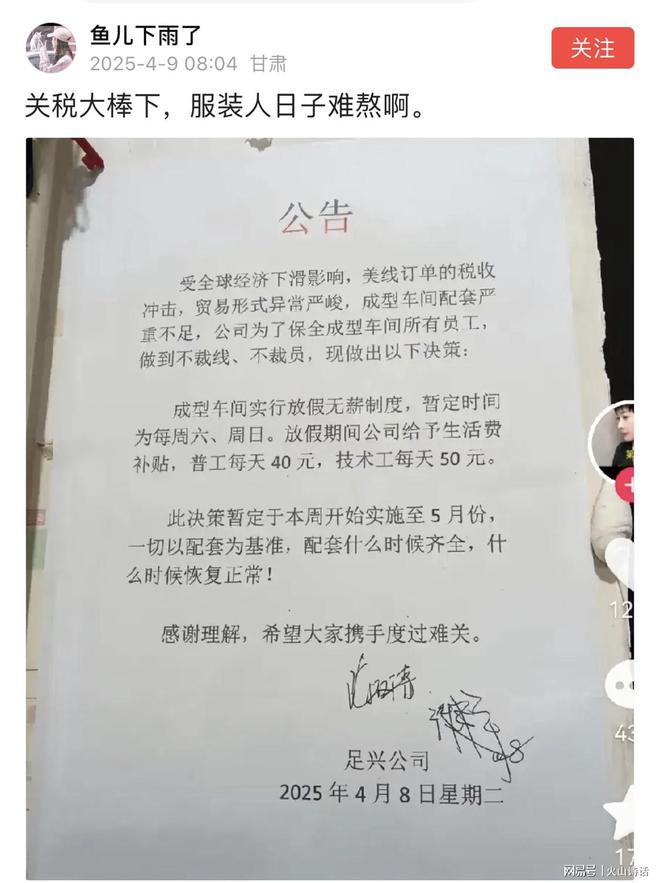 鱼儿下雨了
2025-4-9 08:04 甘肃
关注
关税大棒下，服装人日子难熬啊。
公告
受全球经济下滑影响，美线订单的税收
冲击，贸易形式异常严峻，成型车间配套严
重不足，公司为了保全成型车间所有员工，
做到不裁线、不裁员，现做出以下决策：
成型车间实行放假无薪制度，暂定时间
为每周六、周日。放假期间公司给予生活费
补贴，普工每天 40 元，技术工每天 50 元。
此决策暂定于本周开始实施至 5 月份，
一切以配套为基准，配套什么时候齐全，什
么时候恢复正常！
感谢理解，希望大家携手度过难关。
足兴公司
2025 年 4 月 8 日星期二
网易号 | 火山诗话